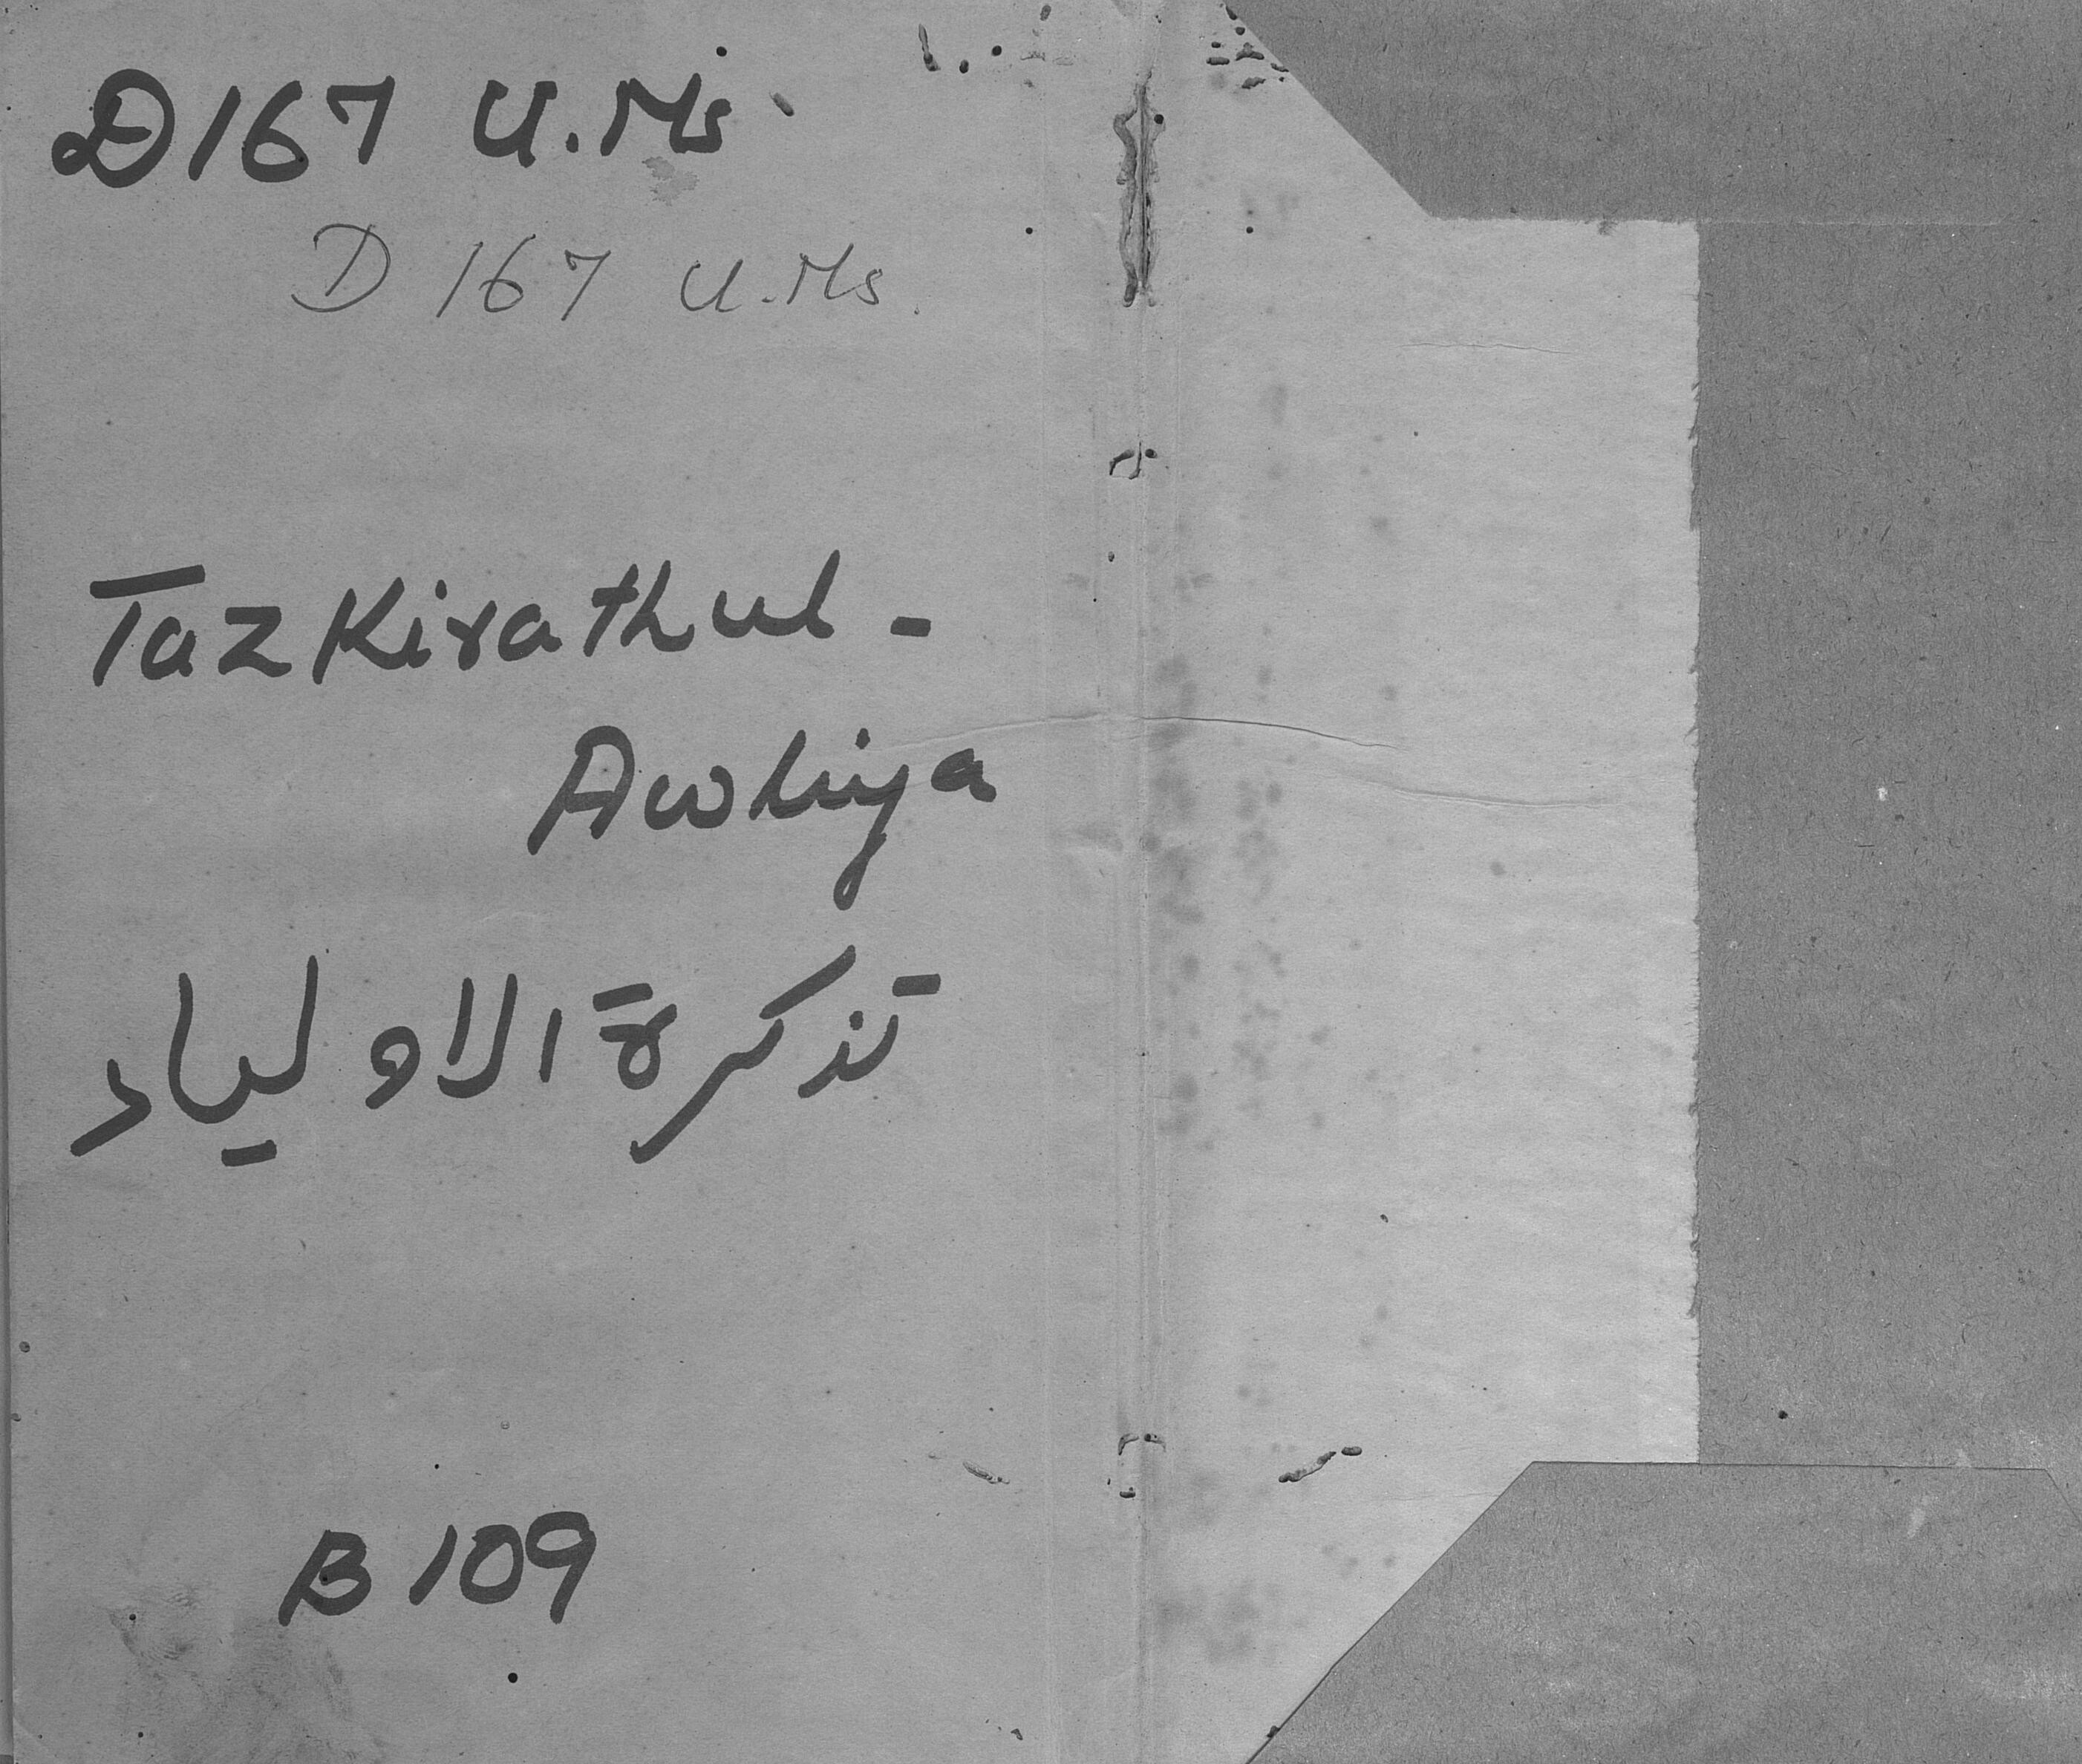 D 167 U.Ms
D 167 U.Ms.
Tazkirathul-
Awliya
تذكرة الاولياء
B 109